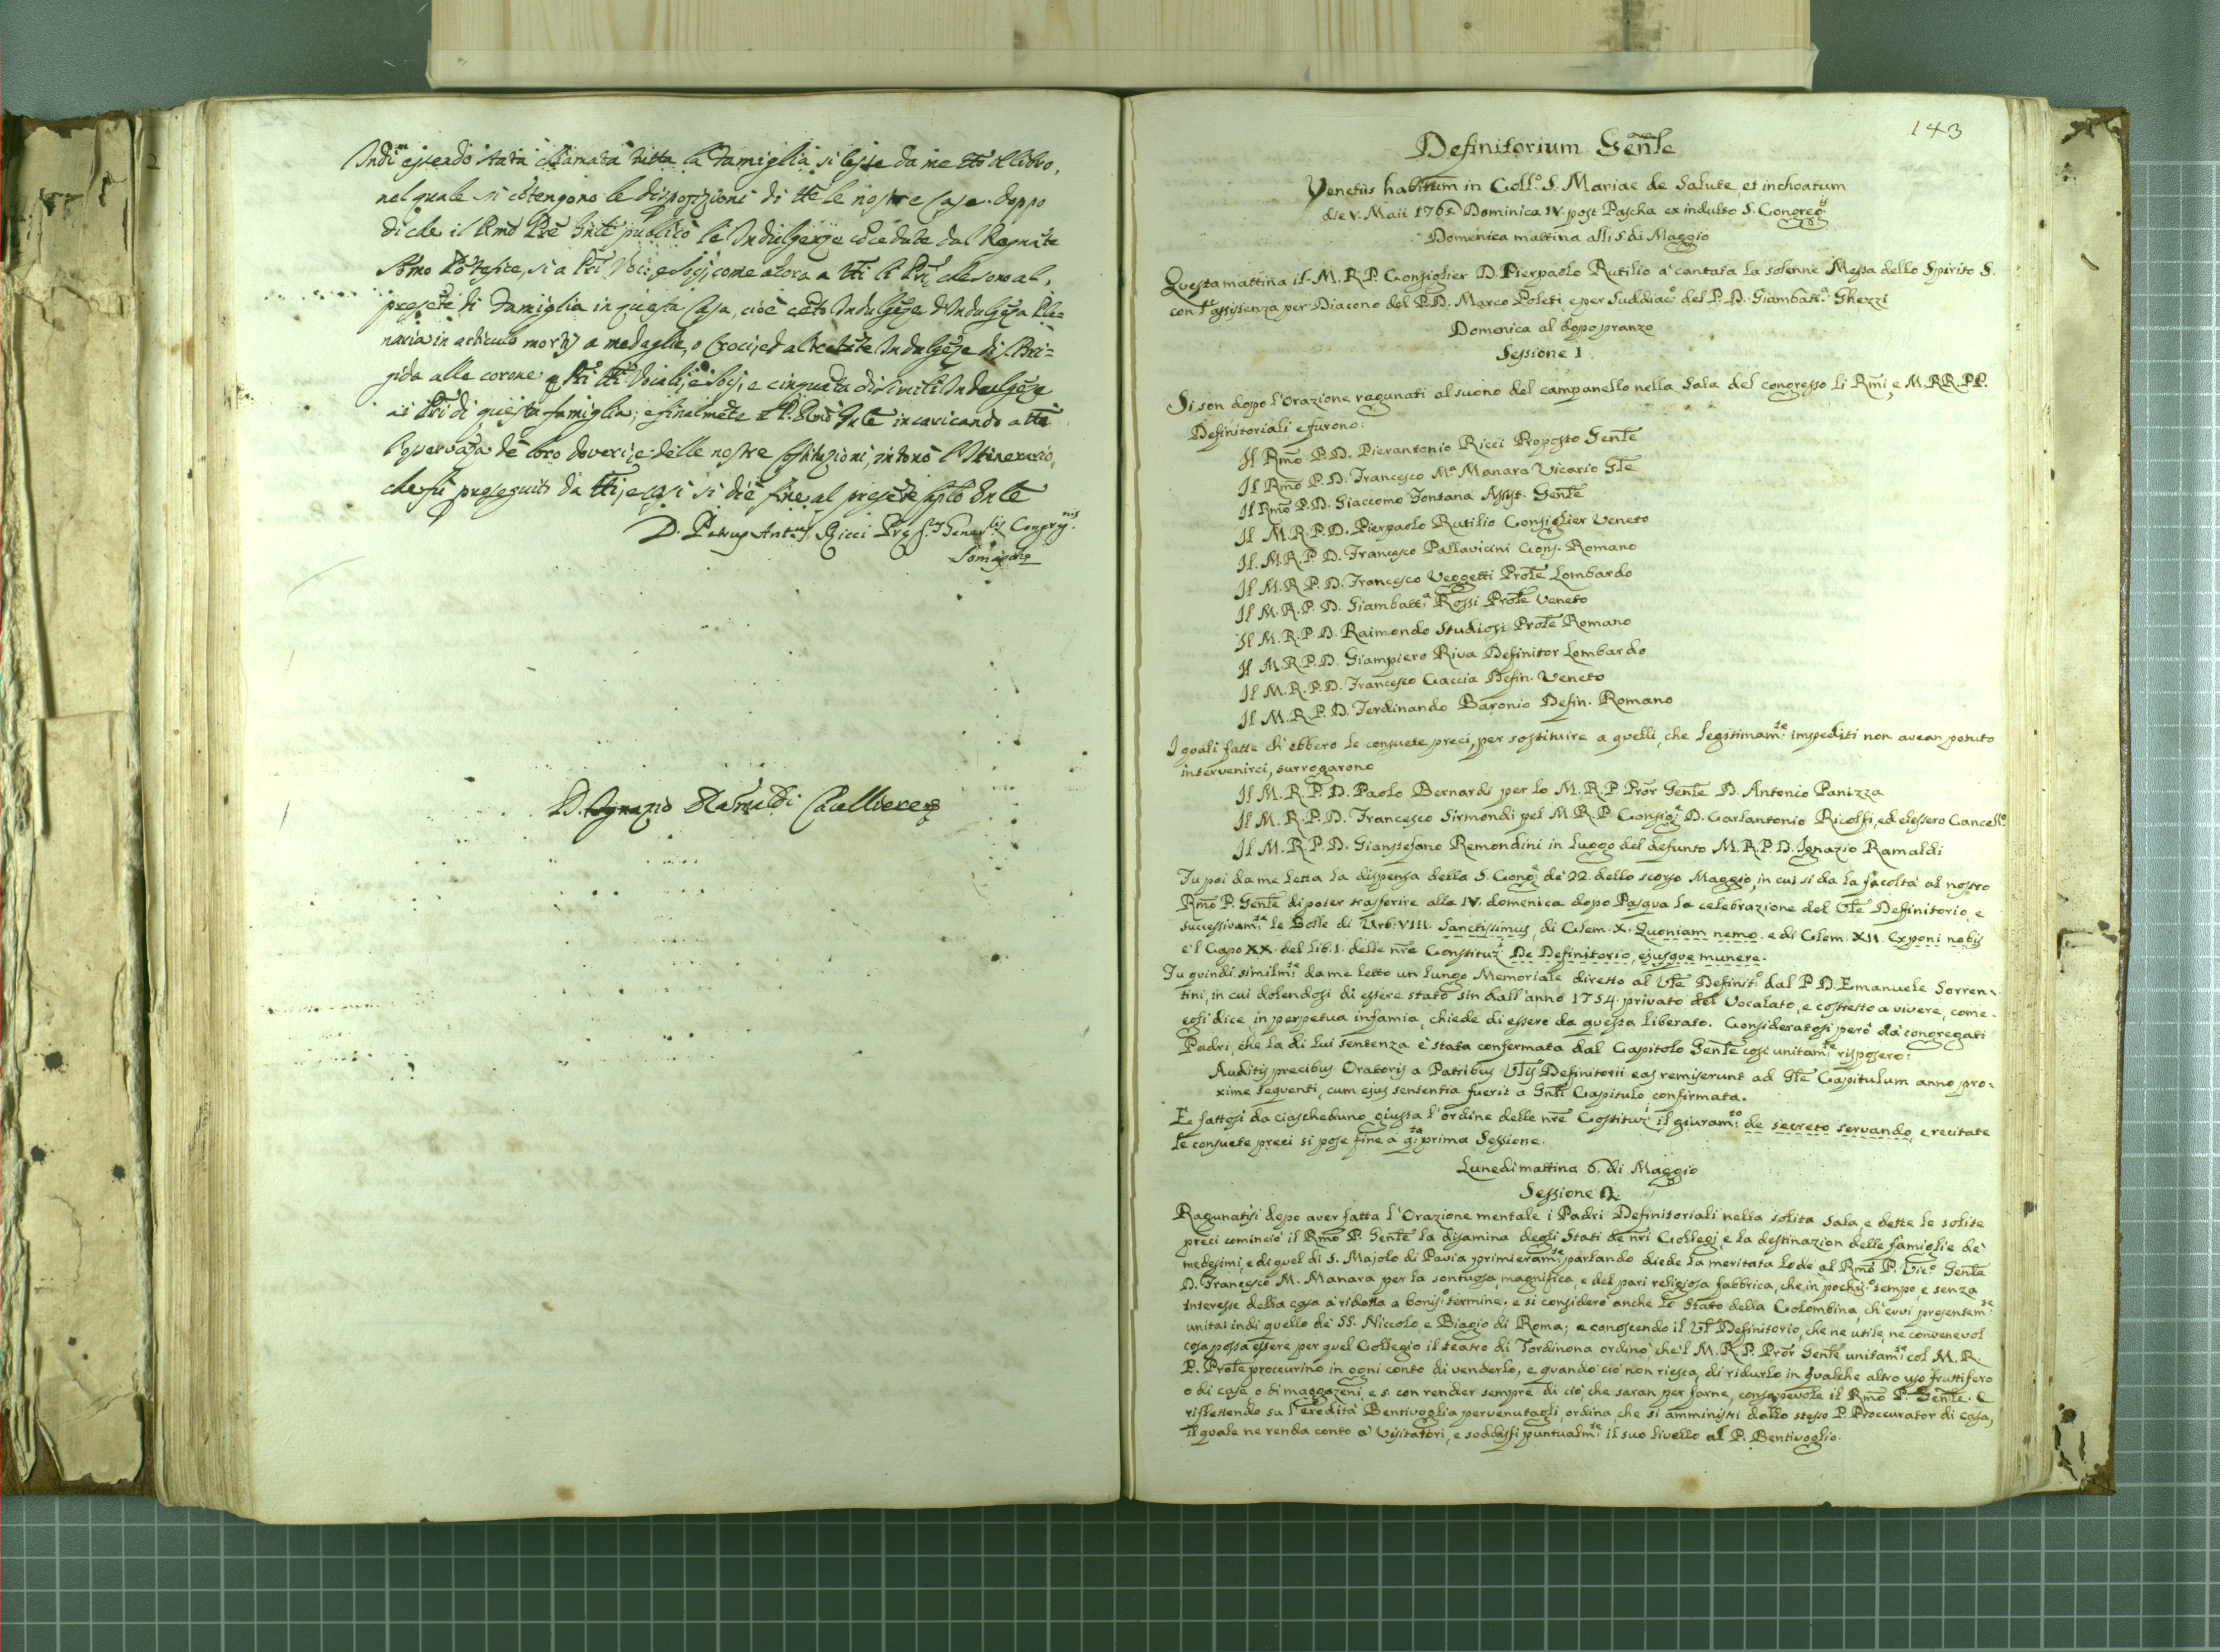 Indi essendo stata chiamata tutta la Famiglia si lesse da me tto il libro,
nel quale si cōtengono le disposizioni di tte le nostre Case. doppo
di che il Rmo Pre Gnle publicò le Indulgenze cōcedute dal Regnāte
Somo Pōtefice, si a Pri Voci, e Socj, come alora a tti li Pri, che sono al
presēte di Famiglia in questa Casa, cioè cēto Indulgēze d'Indulgēza Ple=
naria in articulo mortis a medaglie, o Croci, ed altretāte Indulgēze di S. Bri=
gida alle corone a Pri tti Vocali, e Socj, e cinquāta di simili Indulgēze
ai Pri di questa famiglia; e finalmēte il P. Rmo Gnle incaricando a tti
l'osservāza de loro doveri, e delle nostre Costituzioni, intonò l'Itinerario,
che fù proseguito da tti, e così si diè fine al presēte Caplo Gnle
D. Petrus Antus Ricci Prep.tus Generalis Congregnis
Somaschae
D. Ignazio Ramaldi Cancelliere
143
Definitorium Genle
Venetiis habitum in Coll.o S. Mariae de Salute, et inchoatum
die V. Maii 1765. Dominica IV. post Pascha ex indulto S. Congreg.is
Domenica mattina alli 5 di Maggio
Questa mattina il M. R. P. Consiglier D. Pierpaolo Rutilio à cantata la solenne Messa dello Spirito S.
con l'assistenza per Diacono del P. D. Marco Poleti, e per Suddiac.o del P. D. Giambatt.a Ghezzi
Domenica al dopo pranzo
Sessione I
Si son dopo l'Orazione ragunati al suono del campanello nella Sala del congresso li Rmi, e M. RR. PP.
Definitoriali e furono:
Il Rmo P. D. Pierantonio Ricci Proposto Genle
Il Rmo P. D. Francesco M.a Manara Vicario Gle
Il Rmo P. D. Giaccomo Fontana Assist. Genle
Il M. R. P. D. Pierpaolo Rutilio Consiglier Veneto
Il M. R. P. D. Francesco Pallavicini Cons. Romano
Il M. R. P. D. Francesco Veggetti Prole Lombardo
Il M. R. P. D. Giambatt.a Rossi Prole Veneto
Il M. R. P. D. Raimondo Studiosi Prole Romano
Il M. R. P. D. Giampiero Riva Definitor Lombardo
Il M. R. P. D. Francesco Caccia Defin. Veneto
Il M. R. P. D. Ferdinando Baronio Defin. Romano
I quali fatte ch'ebbero le consuete preci, per sostituire a quelli, che legitimam.te impediti non avean potuto
intervenirci, surrogarono
Il M. R. P. D. Paolo Bernardi per lo M. R. P. Pror Genle D. Antonio Panizza
Il M. R. P. D. Francesco Sirmondi pel M. R. P. Consig.r D. Carlantonio Ricolfi, ed elessero Cancell.o
Il M. R. P. D. Gianstefano Remondini in luogo del defunto M. R. P. D. Ignazio Ramaldi
Fu poi da me letta la dispensa della S. Cong.e dè 22. dello scorso Maggio, in cui si da la facoltà al nostro
Rmo P. Genle di poter trasferire alla IV. domenica dopo Pasqua la celebrazione del Vle Definitorio, e
successivam.te le Bolle di Urb. VIII. Sanctissimus, di Clem. X. Quoniam nemo. e di Clem. XII. Exponi nobis
e'l Capo XX. del lib. I. delle nre Constituz.i De Definitorio, ejusque munere.
Fu quindi similm.te da me letto un lungo Memoriale diretto al Vle Definit.o dal P. D. Emanuele Sorren-
tini, in cui dolendosi di essere stato sin dall'anno 1754. privato del Vocalato, e costretto a vivere, come
egli dice, in perpetua infamia, chiede di essere da questa liberato. Consideratosi però dà congregati
Padri, che la di lui sentenza è stata confermata dal Capitolo Genle così unitam.te risposero:
Auditis precibus Oratoris a Patribus Vlis Definitorii eas remiserunt ad Gle Capitulum anno pro-
xime sequenti, cum ejus sententia fuerit a Gnli Capitulo confirmata.
E fattosi da ciascheduno, giusta l'ordine delle nre Costituz.i il giuram.to de secreto servando, e recitate
le consuete preci si pose fine a q.ta prima Sessione.
Lunedi mattina 6. di Maggio
Sessione 2.
Ragunatisi dopo aver fatta l'Orazione mentale i Padri Definitoriali nella solita Sala, e dette le solite
preci cominciò il Rmo P. Genle la disamina degli Stati de nri Collegj, e la destinazion delle famiglie dè
medesimi, e di quel di S. Majolo di Pavia primieram.te parlando diede la meritata lode al Rmo P. Vic.o Genle
D. Francesco M. Manara per la sontuosa, magnifica, e del pari religiosa fabbrica, che in pochis.o tempo, e senza
interesse della casa à ridotta a bonis.o termine; e si considerò anche lo Stato della Colombina, ch'evvi presentem.te
unita: indi quello dè SS. Niccolo, e Biagio di Roma; e conoscendo il Vle Definitorio, che ne utile, ne convenevol
cosa possa essere per quel Collegio il teatro di Tordinona ordinò, che'l M. R. P. Pror Genle unitam.te col M. R.
P. Prole proccurino in ogni conto di venderlo, e quando ciò non riesca, di ridurlo in qualche altro uso fruttifero
o di case, o di maggazeni, e s. con render sempre di ciò, che saran per farne, consapevole il Rmo P. Genle. E
riflettendo su l'eredità Bentivoglia pervenutagli, ordina, che si amministri dallo stesso P. Proccurator di casa,
il quale ne renda conto à Visitatori, e soddisfi puntualm.te il suo livello al P. Bentivoglio.